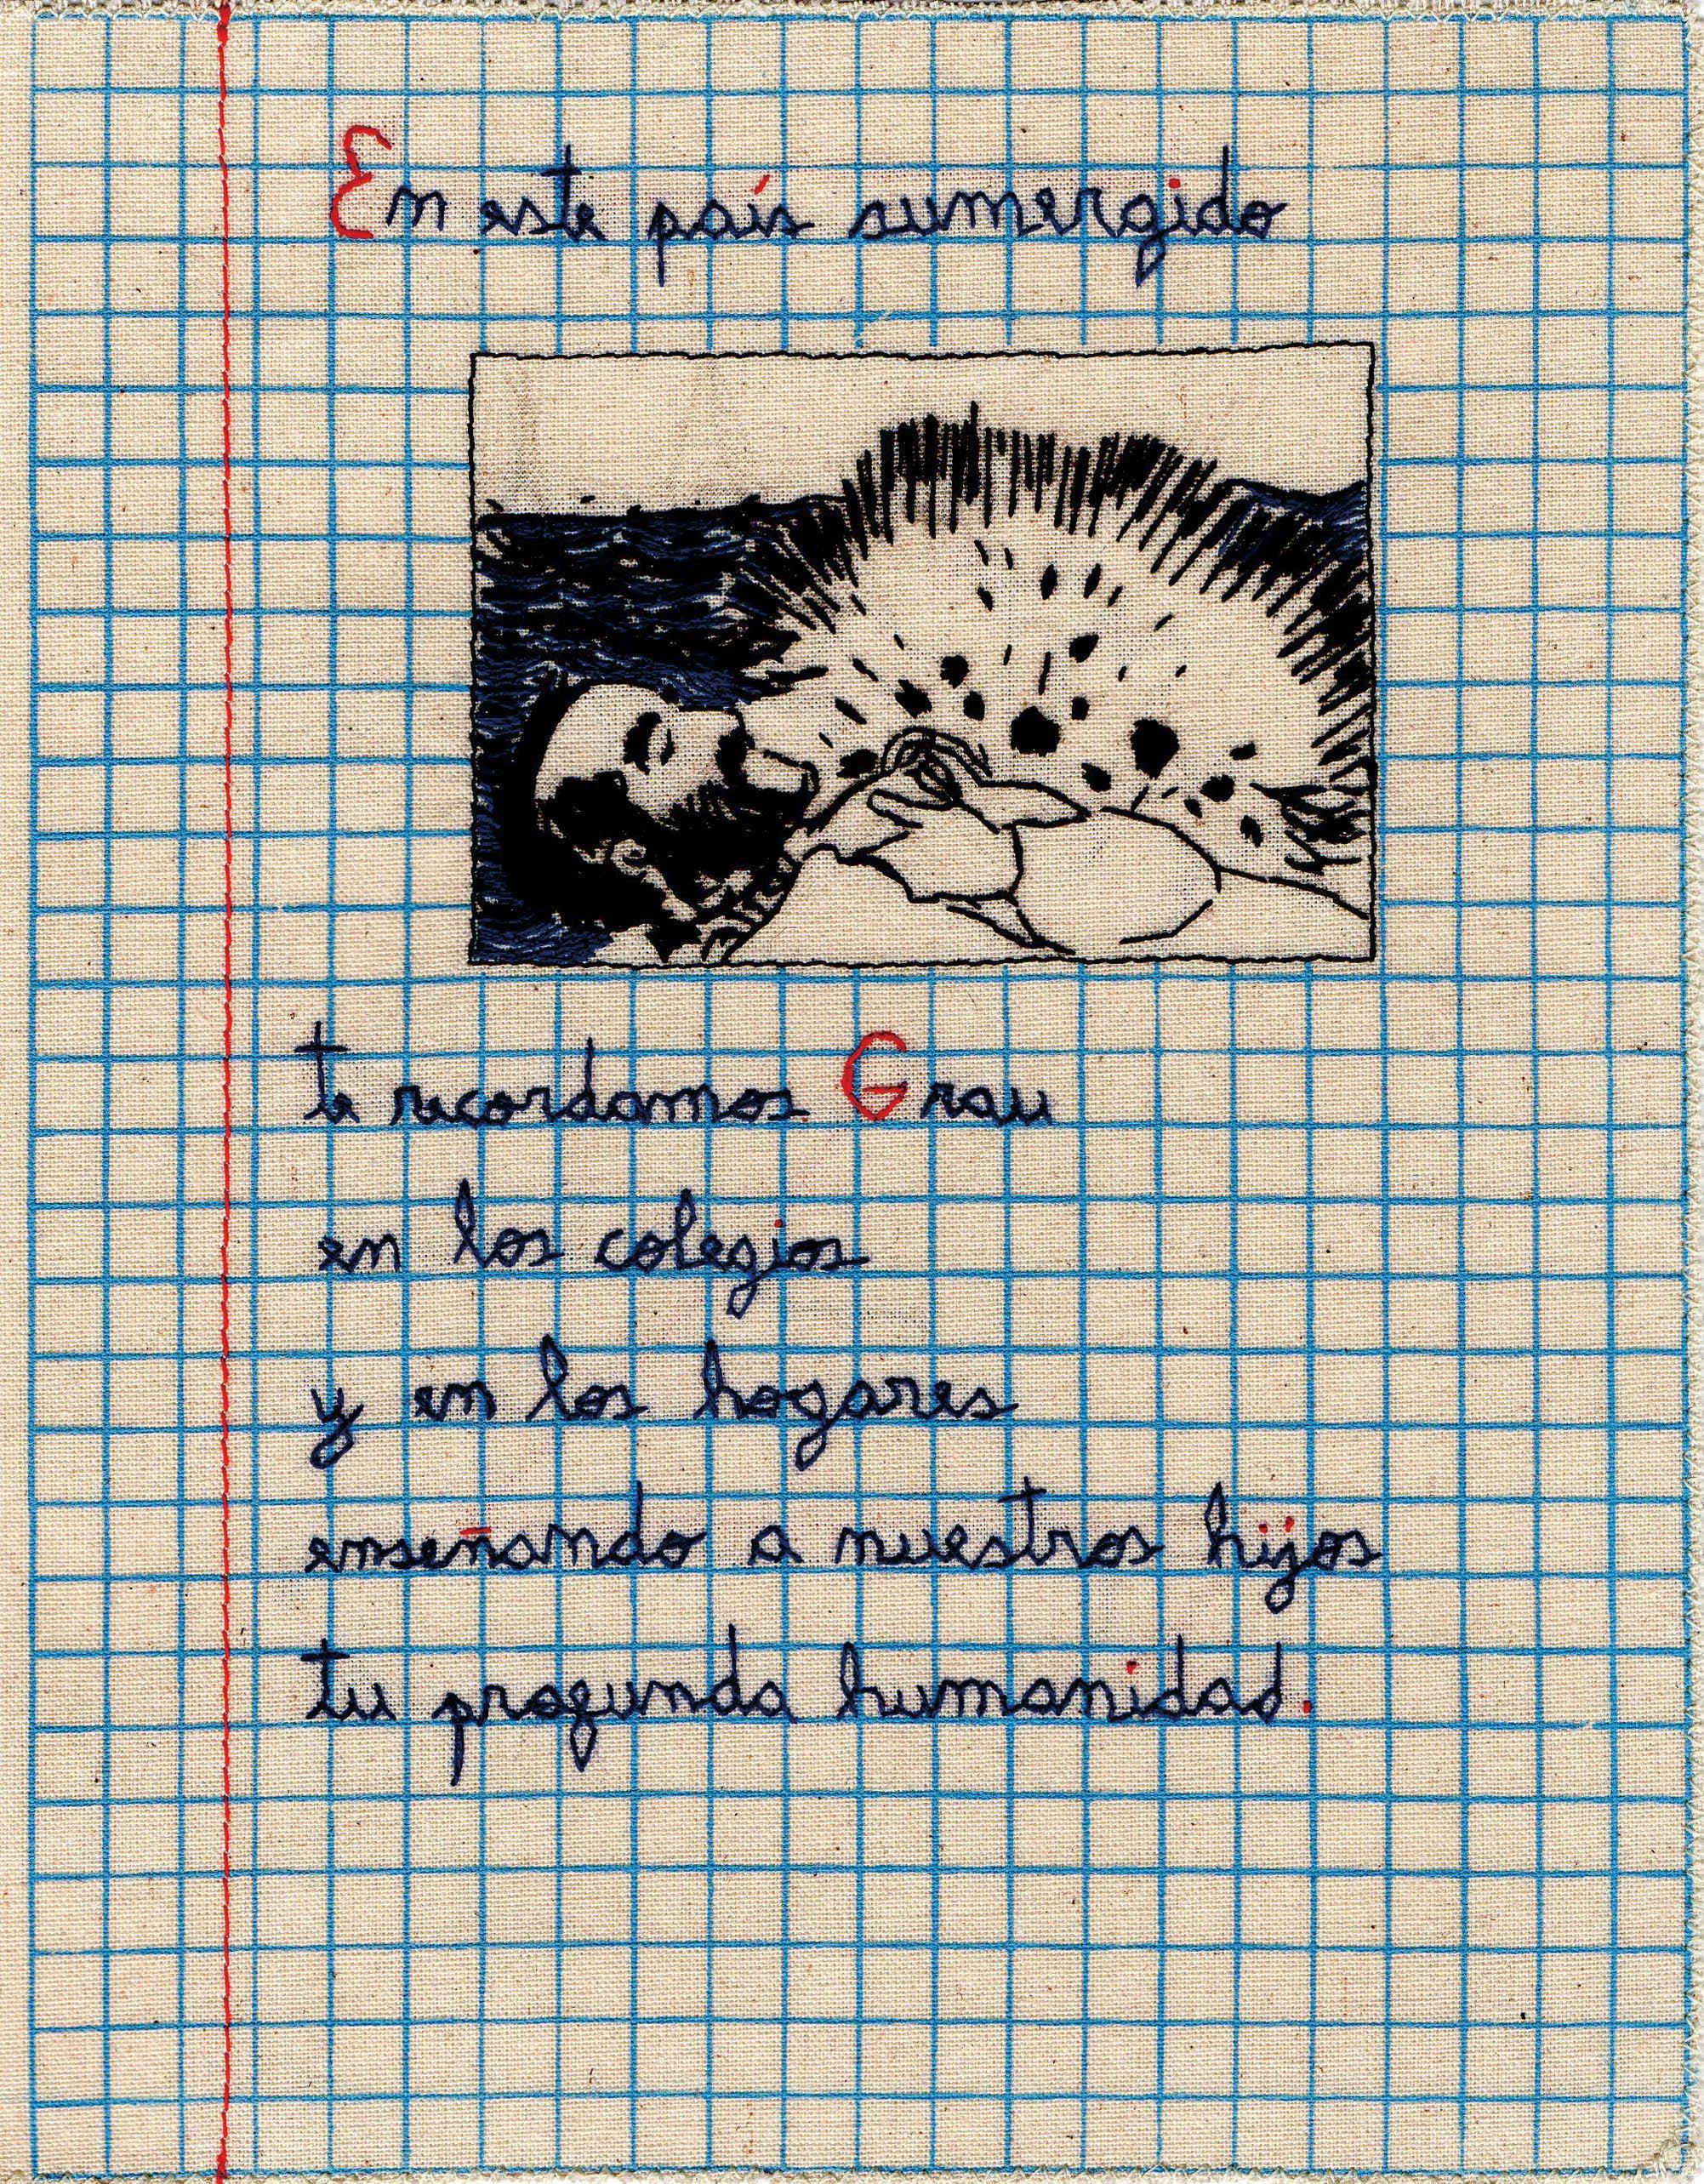 En este país sumergido
te recordamos Grau
en los colegios
y en los hogares
enseñando a nuestros hijos
tu profunda humanidad.